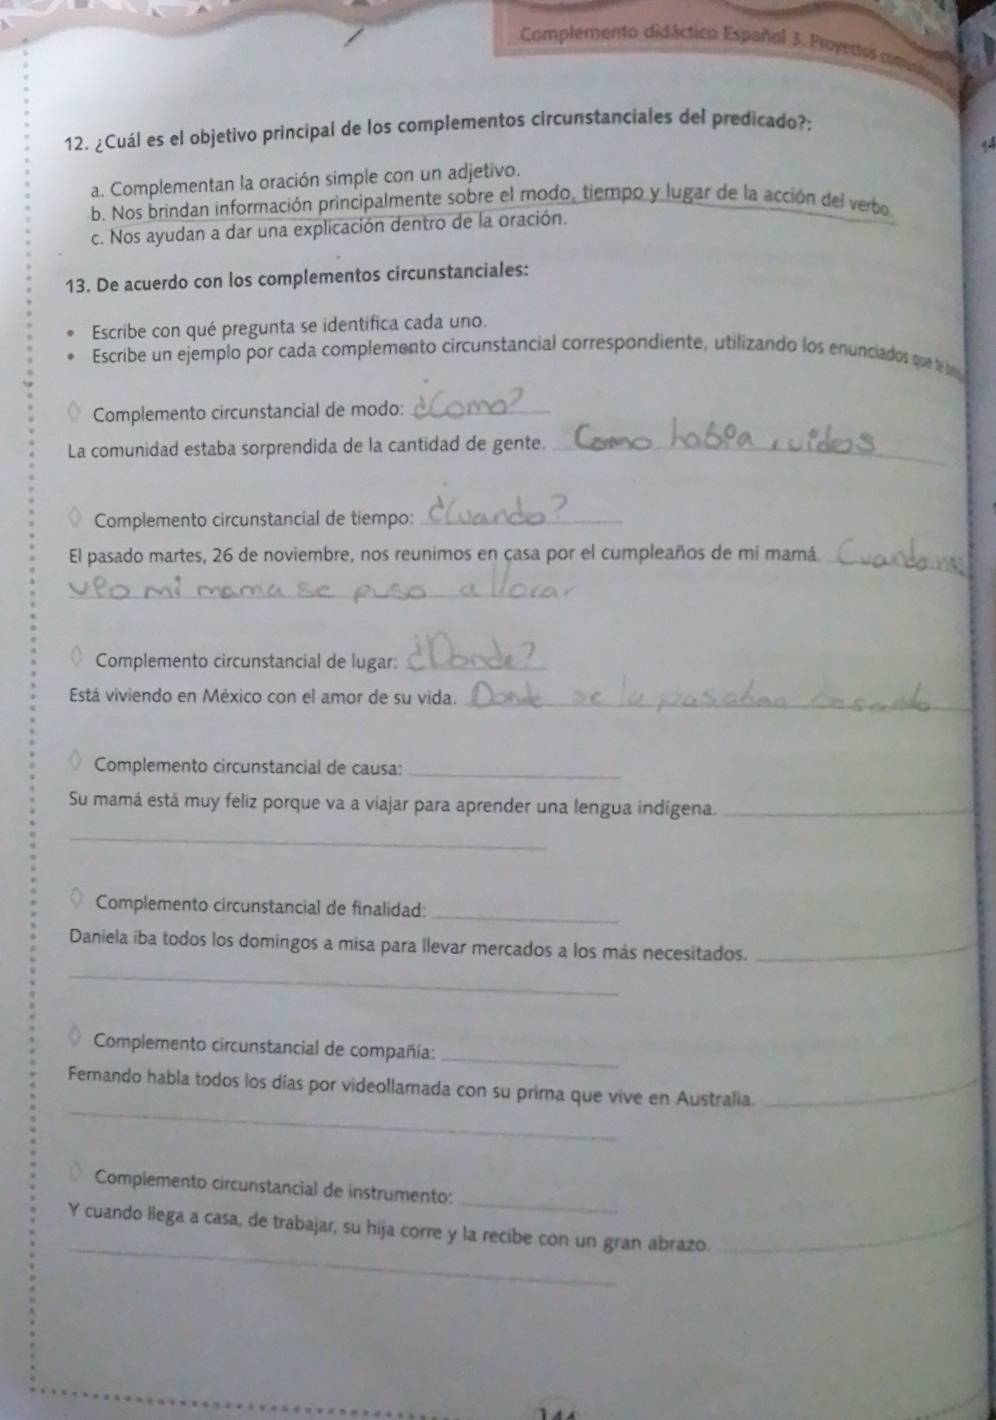 Complemento didáctico Español 3. Proyectos
12. ¿Cuál es el objetivo principal de los complementos circunstanciales del predicado?:
a. Complementan la oración simple con un adjetivo.
b. Nos brindan información principalmente sobre el modo, tiempo y lugar de la acción del verbo.
c. Nos ayudan a dar una explicación dentro de la oración.
13. De acuerdo con los complementos circunstanciales:
• Escribe con qué pregunta se identifica cada uno.
• Escribe un ejemplo por cada complemento circunstancial correspondiente, utilizando los enunciados que te
◊ Complemento circunstancial de modo: ¿Como?
La comunidad estaba sorprendida de la cantidad de gente. Como había ruidos
◊ Complemento circunstancial de tiempo: ¿Cuando?
El pasado martes, 26 de noviembre, nos reunimos en casa por el cumpleaños de mi mamá. Cuando nos
veo mi mama se puso a llorar
◊ Complemento circunstancial de lugar: ¿Donde?
Está viviendo en México con el amor de su vida. Donde se la pasaban besando
◊ Complemento circunstancial de causa:
Su mamá está muy feliz porque va a viajar para aprender una lengua indígena.
◊ Complemento circunstancial de finalidad:
Daniela iba todos los domingos a misa para llevar mercados a los más necesitados.
◊ Complemento circunstancial de compañía:
Fernando habla todos los días por videollamada con su prima que vive en Australia.
◊ Complemento circunstancial de instrumento:
Y cuando llega a casa, de trabajar, su hija corre y la recibe con un gran abrazo.